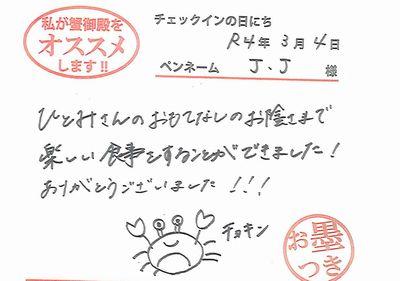 私が蟹御殿を
オススメ
します!!
チェックインの日にち
R4年 3月 4日
ペンネーム J.J 様
ひとみさんのおもてなしのお陰さまで
楽しい食事をすることができました!
ありがとうございました!!!
チョキン
お墨
つき